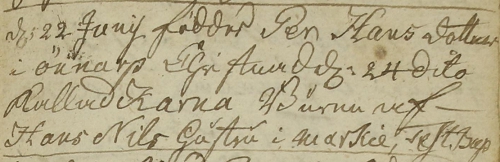 d: 22 Junij föddes Per Hans dotter
i önnarp Christnad d: 24 dito
Kallad Karna Buren af
Hans Nils Hustru i markie, test. Jep